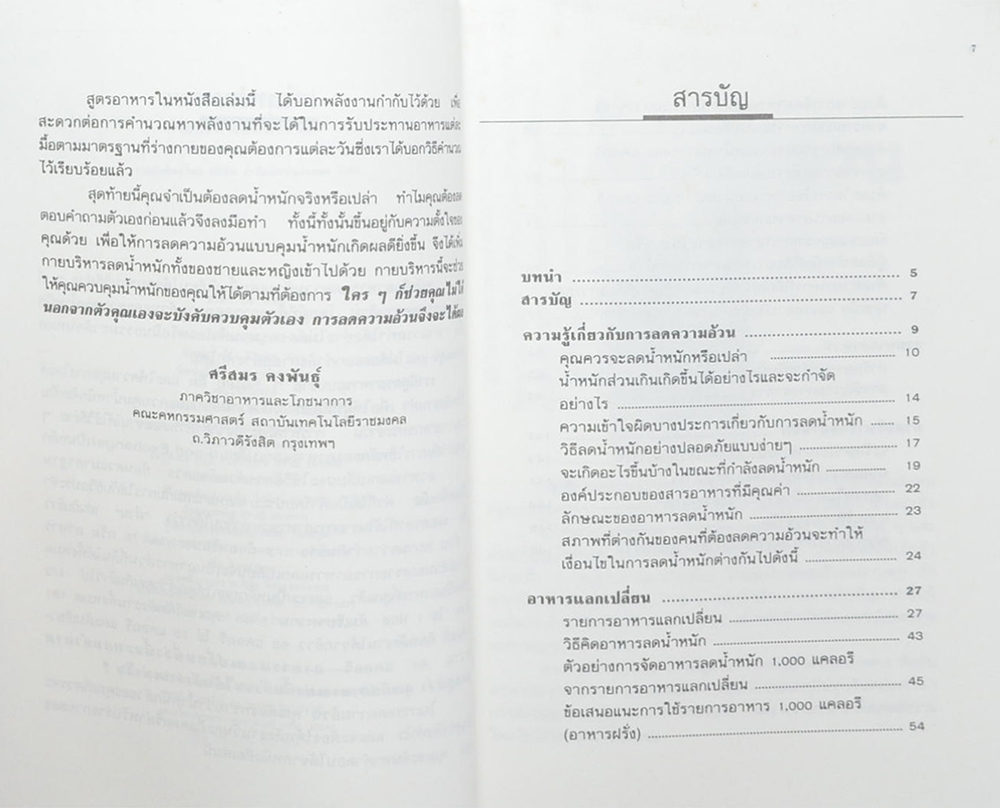 สูตรอาหารในหนังสือเล่มนี้ ได้บอกพลังงานกำกับไว้ด้วย เพื่อ
สะดวกต่อการคำนวณหาพลังงานที่จะได้ในการรับประทานอาหารแต่ละ
มื้อตามมาตรฐานที่ร่างกายของคุณต้องการแต่ละวันซึ่งเราได้บอกวิธีคำนวณ
ไว้เรียบร้อยแล้ว
สุดท้ายนี้คุณจำเป็นต้องลดน้ำหนักจริงหรือเปล่า ทำไมคุณต้องลด
ตอบคำถามตัวเองก่อนแล้วจึงลงมือทำ ทั้งนี้ทั้งนั้นขึ้นอยู่กับความตั้งใจของ
คุณด้วย เพื่อให้การลดความอ้วนแบบคุมน้ำหนักเกิดผลดียิ่งขึ้น จึงได้เพิ่ม
กายบริหารลดน้ำหนักทั้งของชายและหญิงเข้าไปด้วย กายบริหารนี้จะช่วย
ให้คุณควบคุมน้ำหนักของคุณให้ได้ตามที่ต้องการ ใคร ๆ ก็ช่วยคุณไม่ได้
นอกจากตัวคุณเองจะบังคับควบคุมตัวเอง การลดความอ้วนจึงจะได้ผล
ศรีสมร คงพันธุ์
ภาควิชาอาหารและโภชนาการ
คณะคหกรรมศาสตร์ สถาบันเทคโนโลยีราชมงคล
ถ.วิภาวดีรังสิต กรุงเทพฯ
7
สารบัญ
บทนำ ........ 5
สารบัญ ........ 7
ความรู้เกี่ยวกับการลดความอ้วน ........ 9
คุณควรจะลดน้ำหนักหรือเปล่า ........ 10
น้ำหนักส่วนเกินเกิดขึ้นได้อย่างไรและจะกำจัด
อย่างไร ........ 14
ความเข้าใจผิดบางประการเกี่ยวกับการลดน้ำหนัก ........ 15
วิธีลดน้ำหนักอย่างปลอดภัยแบบง่ายๆ ........ 17
จะเกิดอะไรขึ้นบ้างในขณะที่กำลังลดน้ำหนัก ........ 19
องค์ประกอบของสารอาหารที่มีคุณค่า ........ 22
ลักษณะของอาหารลดน้ำหนัก ........ 23
สภาพที่ต่างกันของคนที่ต้องลดความอ้วนจะทำให้
เงื่อนไขในการลดน้ำหนักต่างกันไปดังนี้ ........ 24
อาหารแลกเปลี่ยน ........ 27
รายการอาหารแลกเปลี่ยน ........ 27
วิธีคิดอาหารลดน้ำหนัก ........ 43
ตัวอย่างการจัดอาหารลดน้ำหนัก 1,000 แคลอรี
จากรายการอาหารแลกเปลี่ยน ........ 45
ข้อเสนอแนะการใช้รายการอาหาร 1,000 แคลอรี
(อาหารฝรั่ง) ........ 54